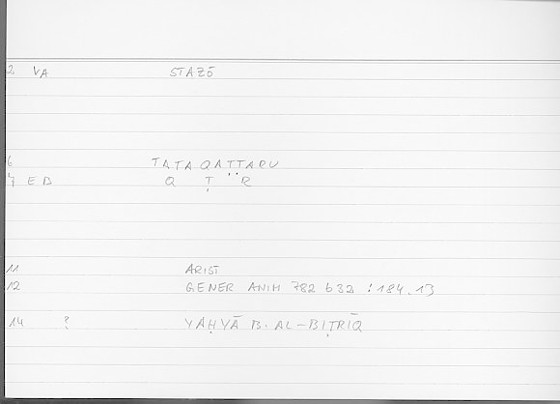 2 VA STAZŌ
6 TATAQAṬṬARU
7 E B Q Ṭ R
11 ARIST
12 GENER ANIM 782 b 33 : 184.13
14 ? YAḤYĀ B. AL-BIṬRĪQ